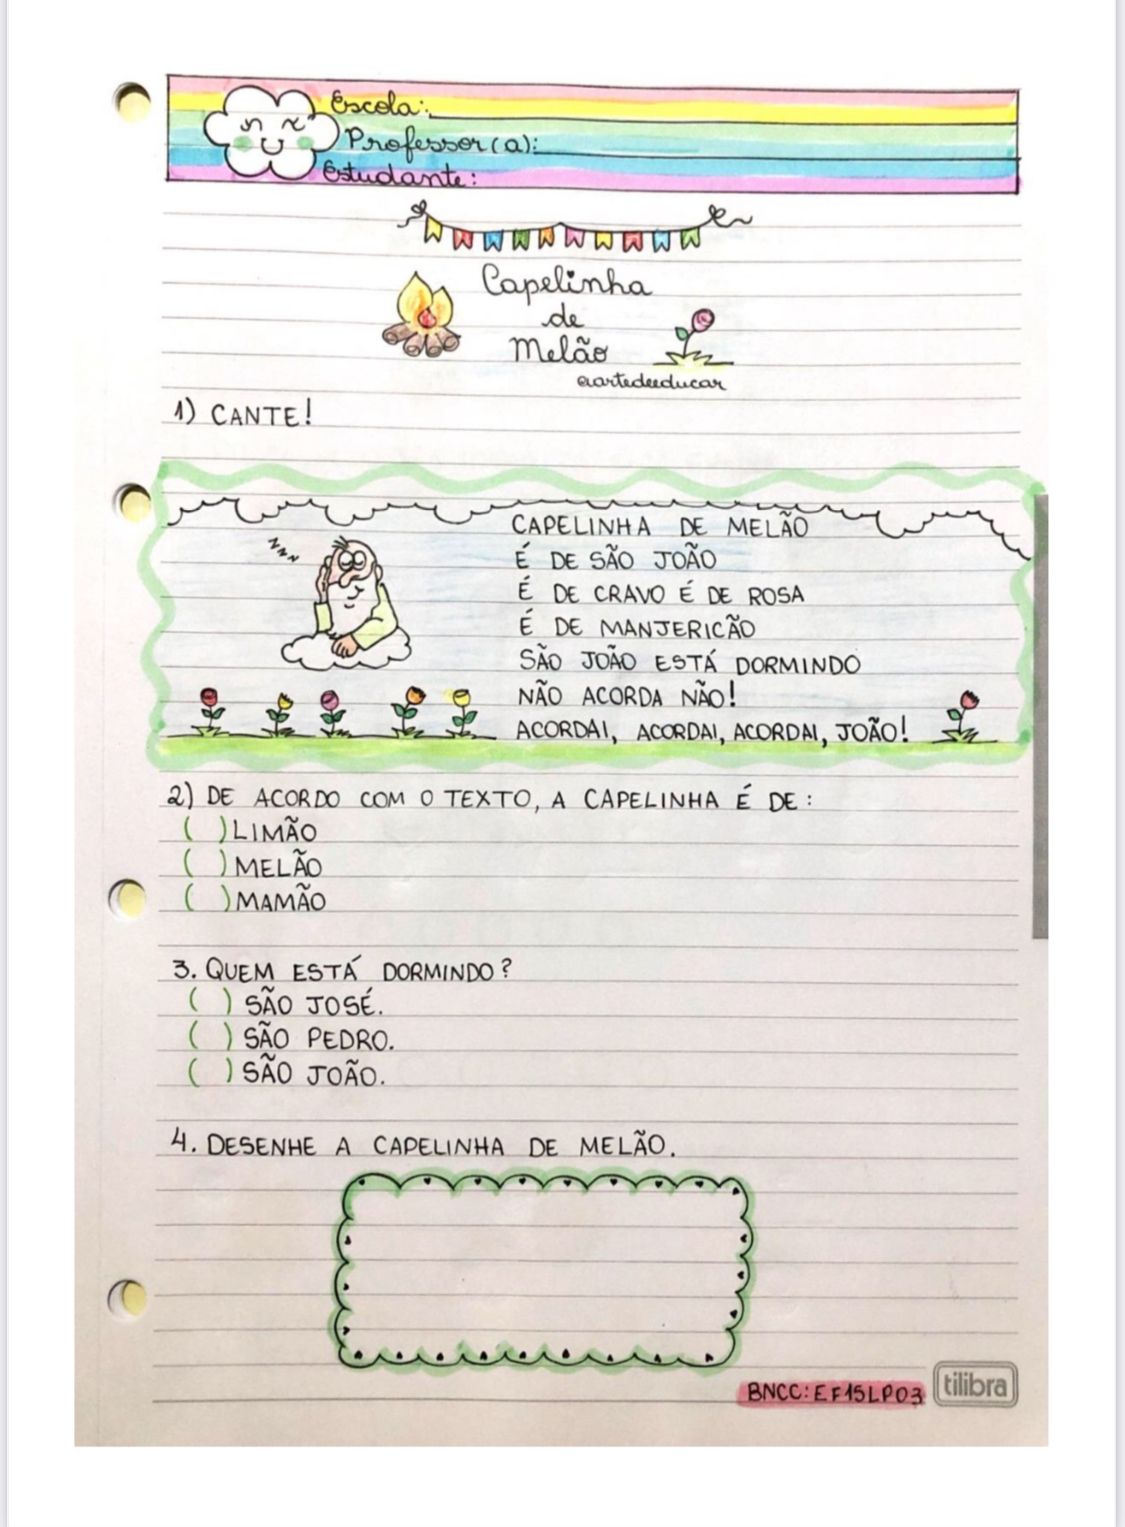 Escola:
Professor(a):
Estudante:
Capelinha
de
Melão
@artedeeducar
1) CANTE!
zzz
CAPELINHA DE MELÃO
É DE SÃO JOÃO
É DE CRAVO É DE ROSA
É DE MANJERICÃO
SÃO JOÃO ESTÁ DORMINDO
NÃO ACORDA NÃO!
ACORDAI, ACORDAI, ACORDAI, JOÃO!
2) DE ACORDO COM O TEXTO, A CAPELINHA É DE:
( ) LIMÃO
( ) MELÃO
( ) MAMÃO
3. QUEM ESTÁ DORMINDO?
( ) SÃO JOSÉ.
( ) SÃO PEDRO.
( ) SÃO JOÃO.
4. DESENHE A CAPELINHA DE MELÃO.
BNCC: EF15LP03
tilibra